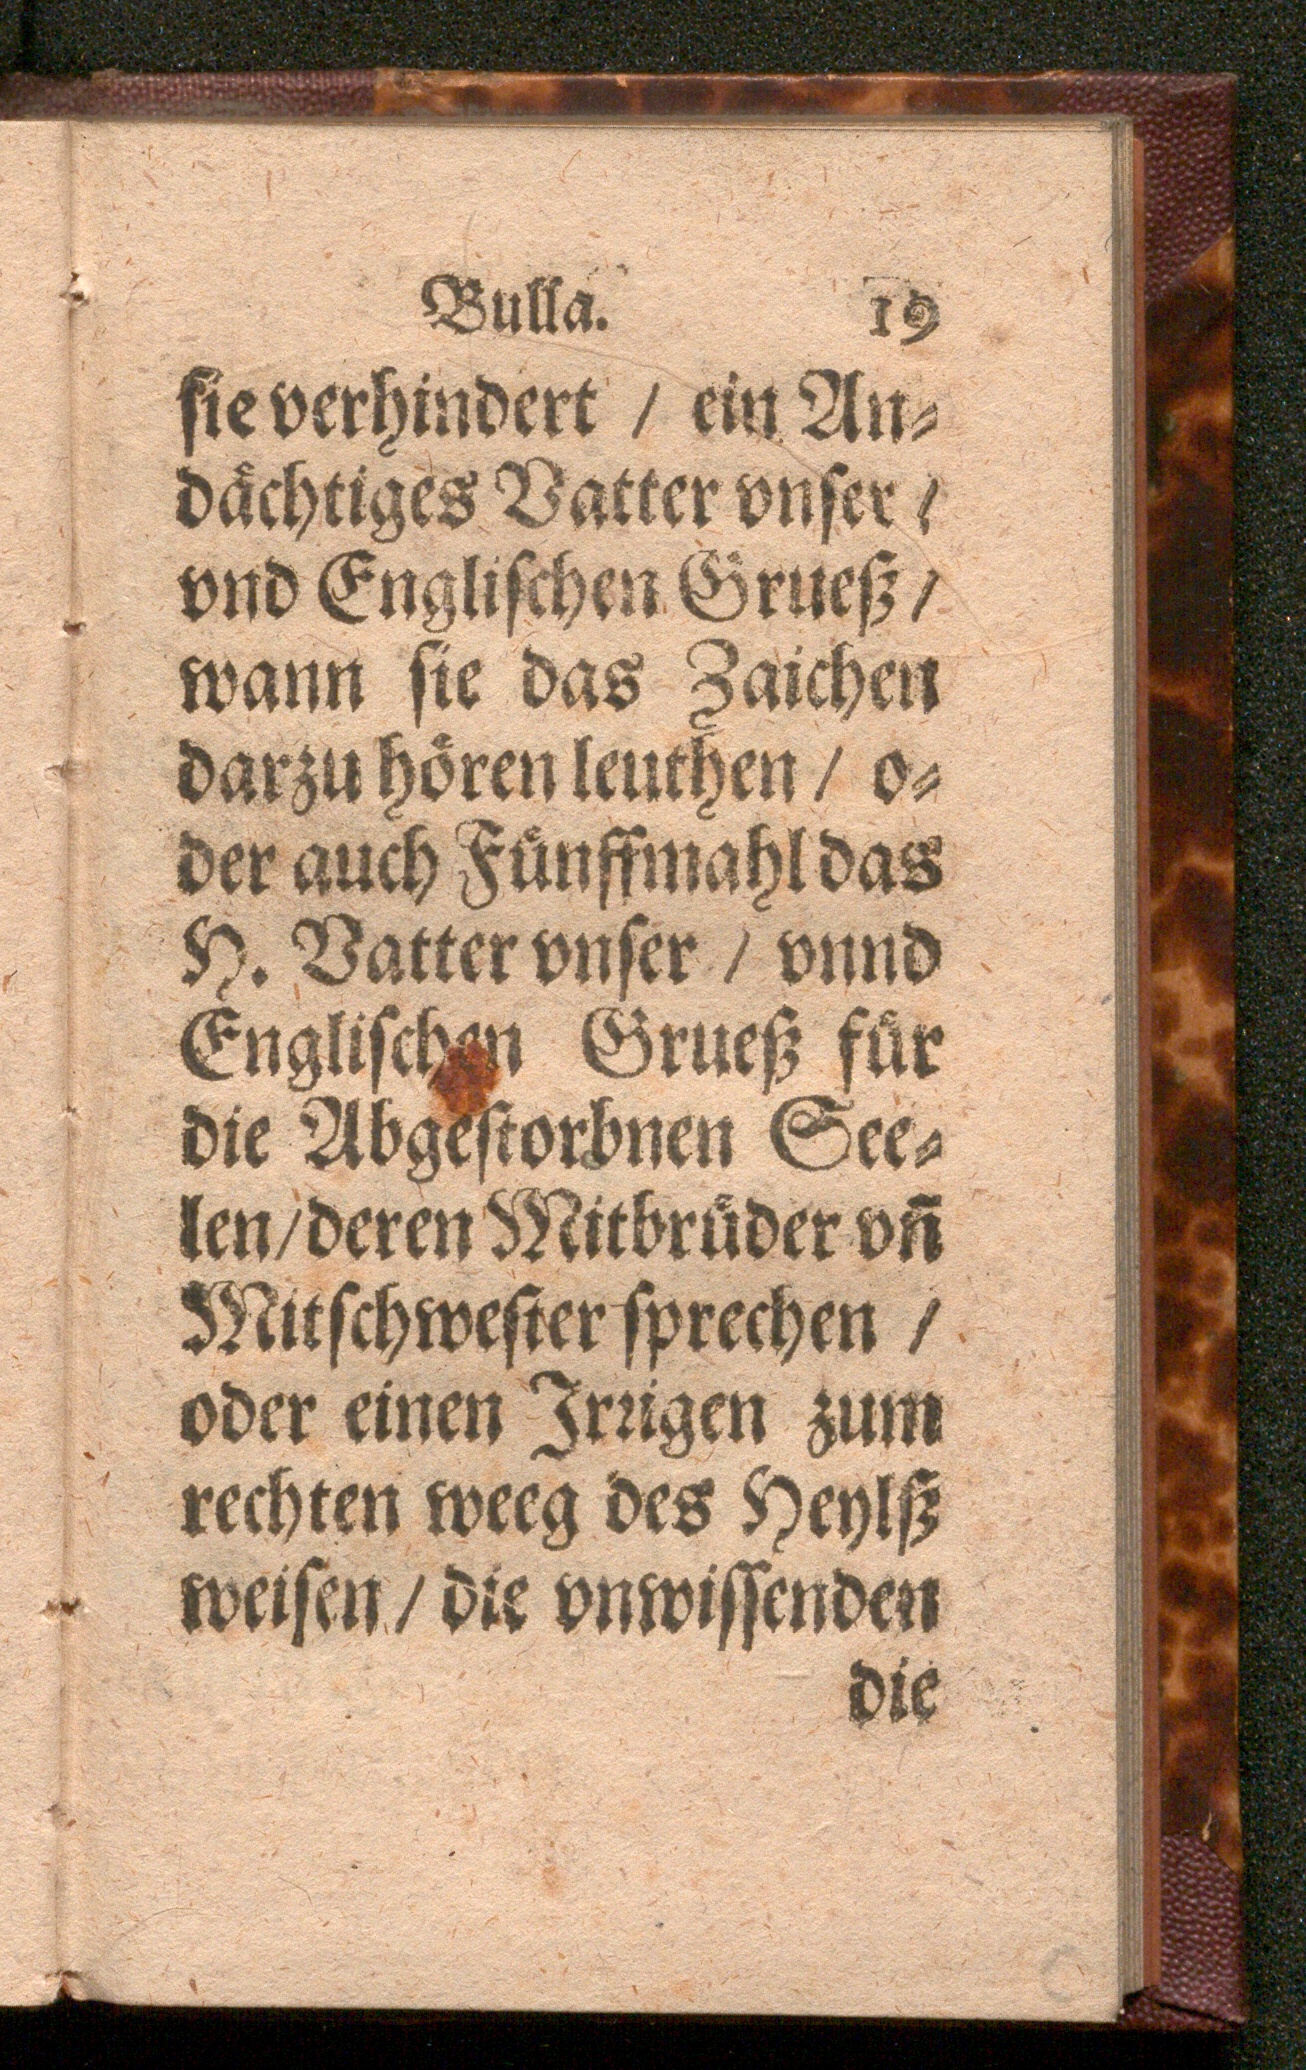 Bulla. 19
ſie verhindert / ein An⸗
daͤchtiges Vatter vnſer /
vnd Engliſchen Grueß /
wann ſie das Zaichen
darzu hoͤren leuthen / o⸗
der auch Fuͤnffmahl das
H. Vatter vnſer / vnnd
Engliſchen Grueß fuͤr
die Abgeſtorbnen See⸗
len / deren Mitbruͤder vñ
Mitſchweſter ſprechen /
oder einen Irꝛigen zum
rechten weeg des Heylß
weiſen / die vnwiſſenden
die